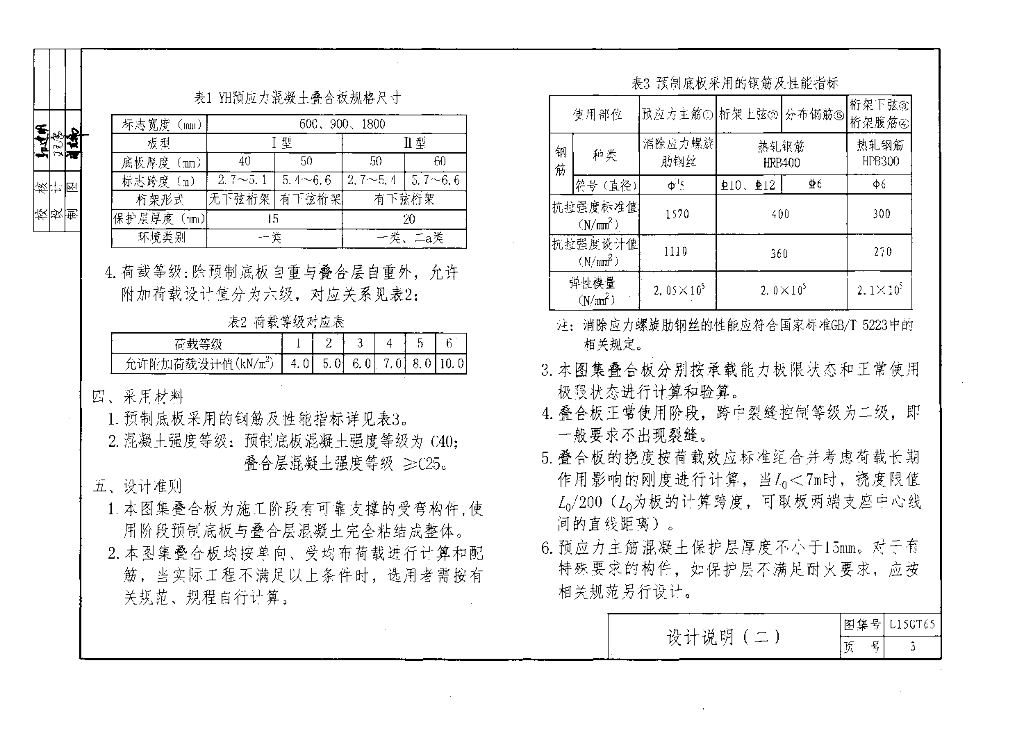 表1 YH预应力混凝土叠合板规格尺寸
标志宽度（mm） 600、900、1800
板型 Ⅰ型 Ⅱ型
底板厚度（mm） 40 50 50 60
标志跨度（m） 2.7～5.1 5.4～6.6 2.7～5.4 5.7～6.6
桁架形式 无下弦桁架 有下弦桁架 有下弦桁架
保护层厚度（mm） 15 20
环境类别 一类 一类、二a类
4.荷载等级:除预制底板自重与叠合层自重外，允许
附加荷载设计值分为六级，对应关系见表2:
表2 荷载等级对应表
荷载等级 1 2 3 4 5 6
允许附加荷载设计值(kN/m²) 4.0 5.0 6.0 7.0 8.0 10.0
四、采用材料
1.预制底板采用的钢筋及性能指标详见表3。
2.混凝土强度等级：预制底板混凝土强度等级为 C40;
叠合层混凝土强度等级 ≥C25。
五、设计准则
1.本图集叠合板为施工阶段有可靠支撑的受弯构件,使
用阶段预制底板与叠合层混凝土完全粘结成整体。
2.本图集叠合板均按单向、受均布荷载进行计算和配
筋，当实际工程不满足以上条件时，选用者需按有
关规范、规程自行计算。
表3 预制底板采用的钢筋及性能指标
使用部位 预应力主筋① 桁架上弦② 分布钢筋⑤ 桁架下弦③
桁架腹筋④
钢筋 种类 消除应力螺旋
肋钢丝 热轧钢筋
HRB400 热轧钢筋
HPB300
符号（直径） Φᴴ5 Φ10、Φ12 Φ6 Φ6
抗拉强度标准值
（N/mm²） 1570 400 300
抗拉强度设计值
（N/mm²） 1110 360 270
弹性模量
（N/mm²） 2.05×10⁵ 2.0×10⁵ 2.1×10⁵
注：消除应力螺旋肋钢丝的性能应符合国家标准GB/T 5223中的
相关规定。
3.本图集叠合板分别按承载能力极限状态和正常使用
极限状态进行计算和验算。
4.叠合板正常使用阶段，跨中裂缝控制等级为二级，即
一般要求不出现裂缝。
5.叠合板的挠度按荷载效应标准组合并考虑荷载长期
作用影响的刚度进行计算，当L₀＜7m时，挠度限值
L₀/200（L₀为板的计算跨度，可取板两端支座中心线
间的直线距离）。
6.预应力主筋混凝土保护层厚度不小于15mm。对于有
特殊要求的构件，如保护层不满足耐火要求，应按
相关规范另行设计。
校 核
设 计
制 图
设计说明（二）
图集号 L15GT65
页 号 3